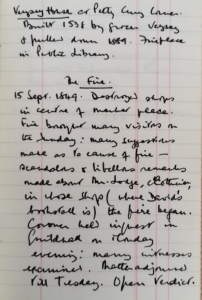 Veysey House at Petty Cury Corner.
Built 1538 by Veysey
& pulled down 1889. Fireplace
in Public Library.
The Fire.
15 Sept. 1849. Destroyed shops
in centre of market place.
Fire brought many visitors on
the Sunday; many suggestions
made as to cause of fire —
scandalous & libellous remarks
made about Mr. Lodge, Clothier,
in whose shop (where David's
bookstall is) the fire began.
Coroner held inquest in
Guildhall on Monday
evening; many witnesses
examined. Matter adjourned
till Tuesday. Open Verdict.